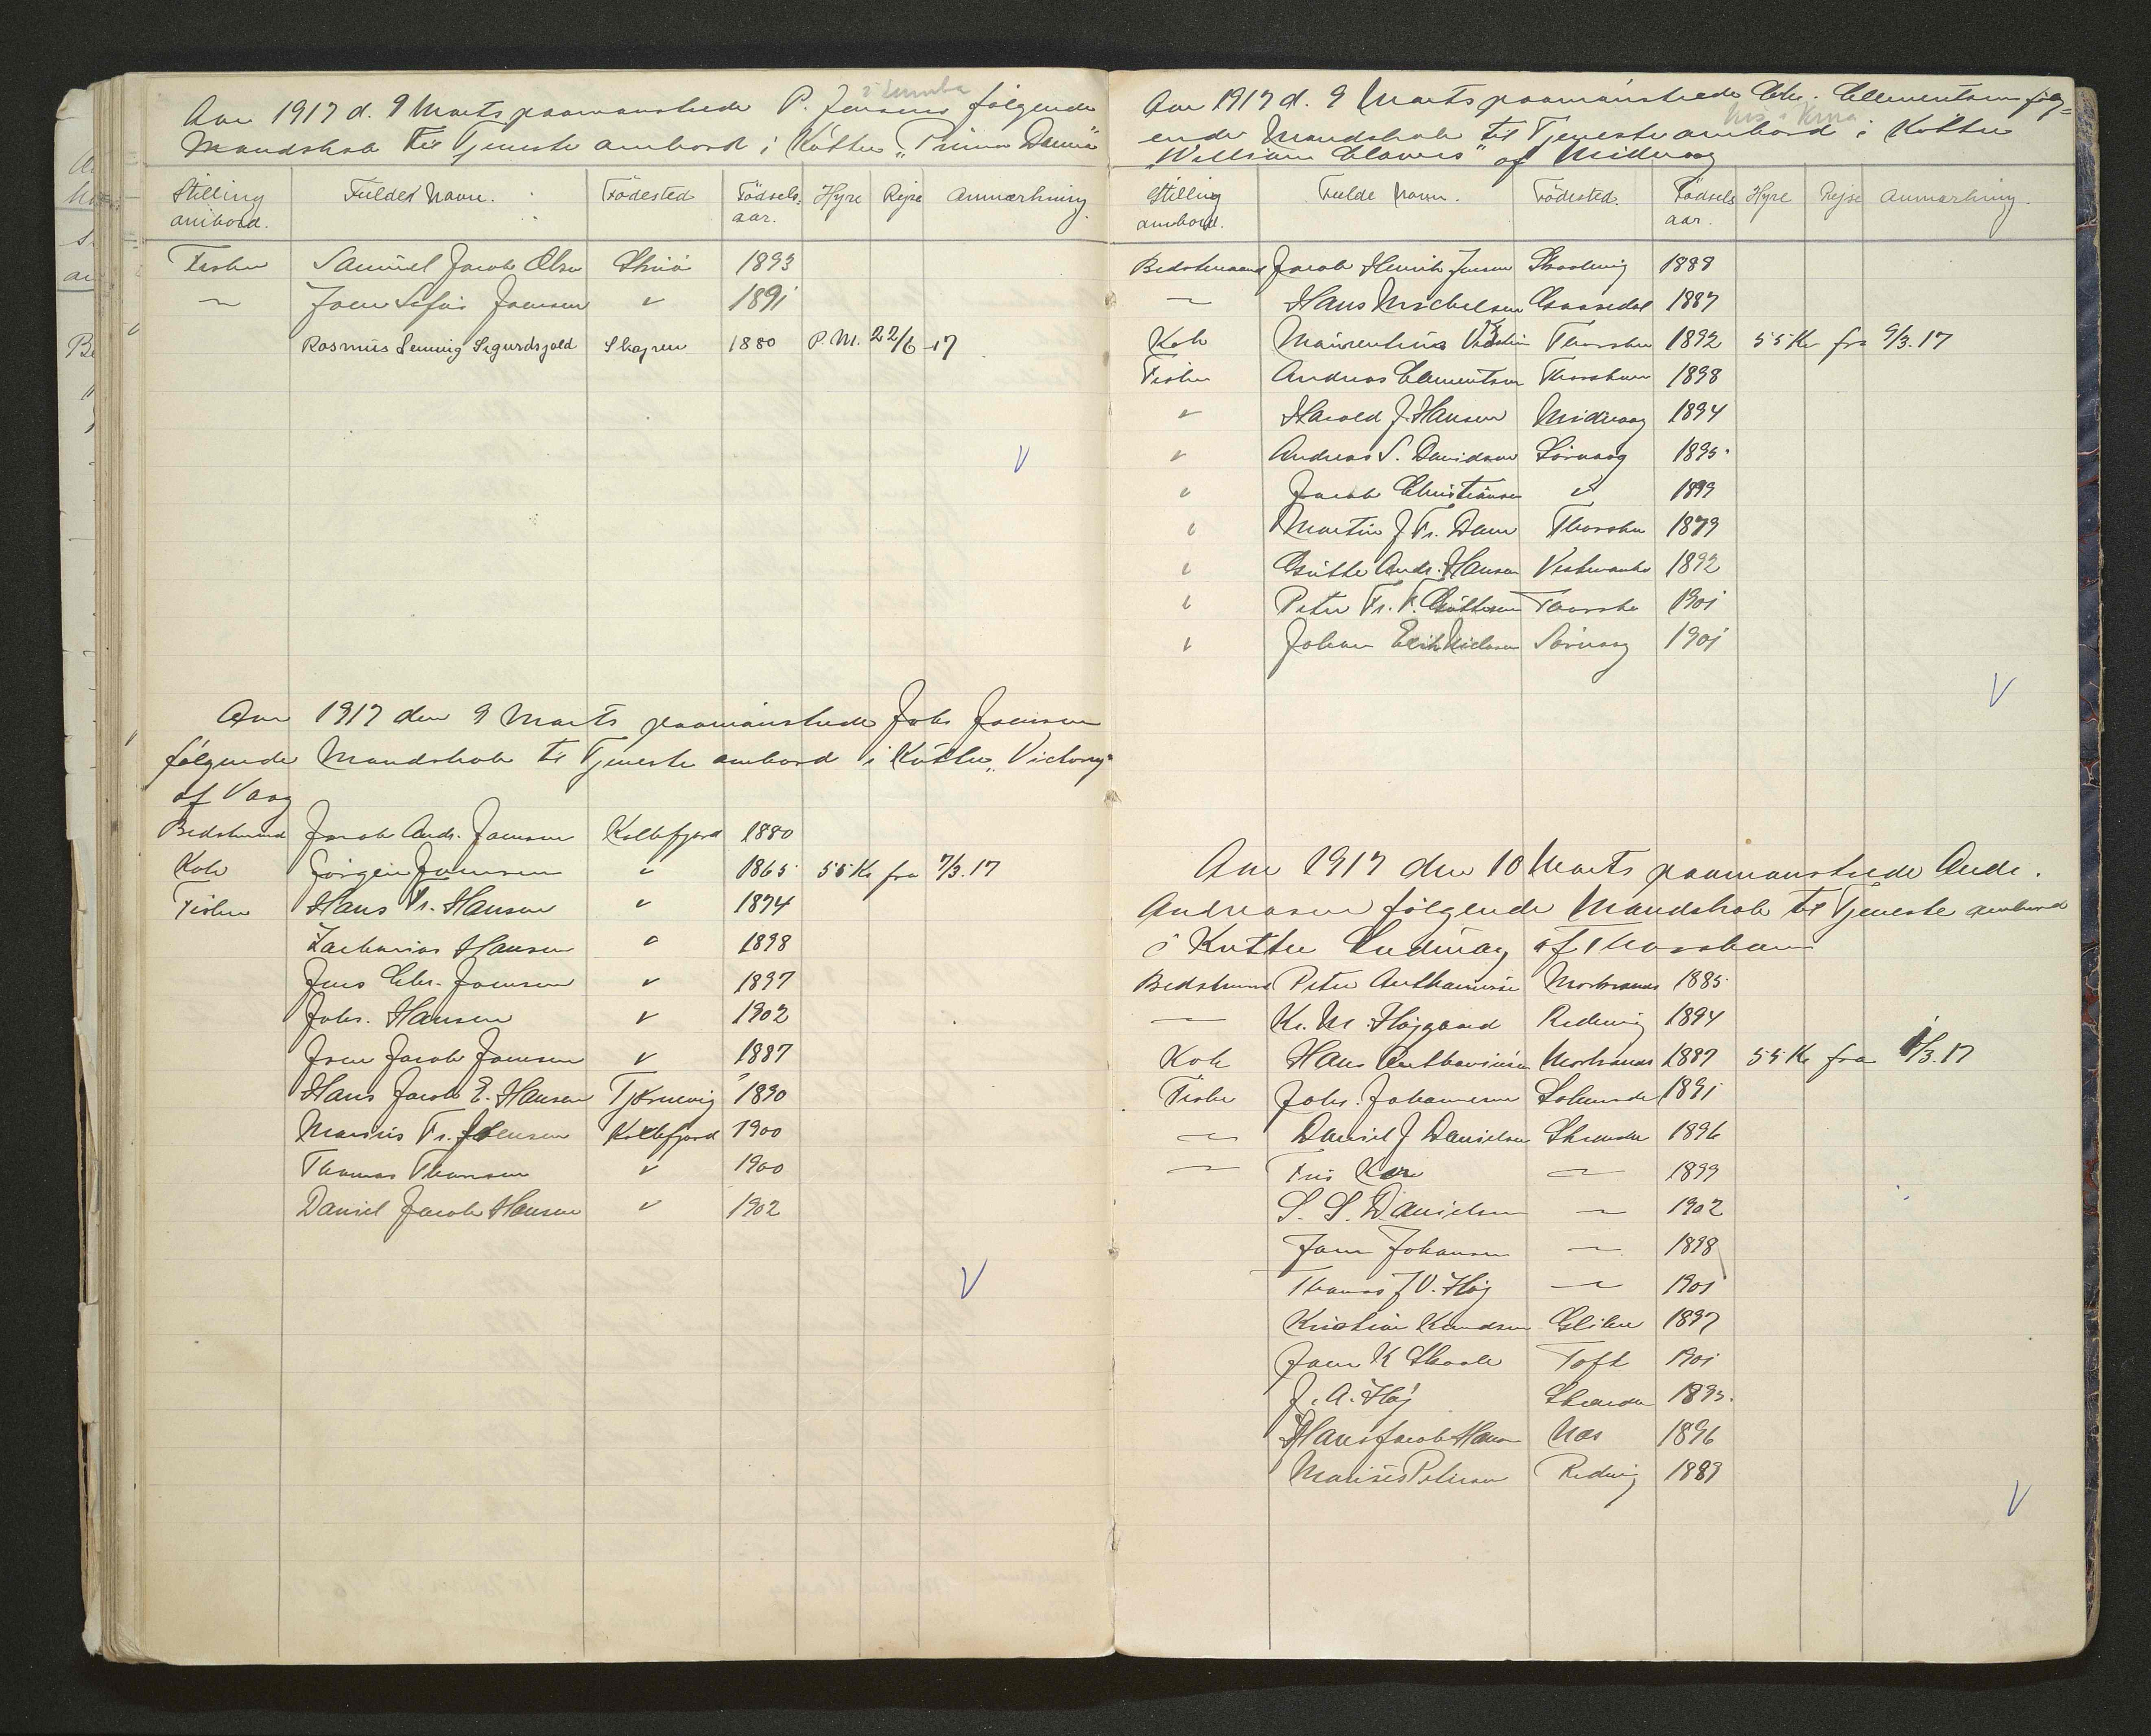 i Sumba
Aar 1917 d. 9 Marts paamønstrede P. Jensen følgende
Mandskab til Tjeneste ombord i Kutter "Prima Danna"
Stilling ombord. Fulde Navn. Fødested Fødsels- aar. Hyre Rejse Anmærkning
Fisker Samuel Jacob Olsen Skuø 1893
— Joen Sofus Joensen " 1891
Rasmus Henning Sigurdsjold Skopen 1880 P.M. 22/6-17
V
Aar 1917 den 9 Marts paamønstrede Johs Joensen
følgende Mandskab til Tjeneste ombord i Kutter "Victory"
af Vaag
Bedstemand Jacob Andr. Joensen Kollefjord 1880
Kok Jörgen Joensen " 1865 55 Kr fra 7/3.17
Fisker Hans Fr. Hansen " 1894
Zacharias Hansen " 1898
Jens Chr. Joensen " 1897
Johs. Hansen " 1902
Joen Jacob Joensen " 1887
Hans Jacob E. Hansen Tjørnevig 1890
Marius Fr. Joensen Kollefjord 1900
Thomas Thomsen " 1900
Daniel Jacob Hansen " 1902
V
Aar 1917 d. 9 Marts paamønstrede Chr. Clementsen følg-
hus i
ende Mandskab til Tjeneste ombord i Kutter
"William Clowes" af Midvaag
Stilling ombord. Fulde Navn. Fødested. Fødsels aar. Hyre Rejse Anmærkning.
Bedstemand Jacob Henrik Joensen Skaalevig 1888
— Hans Michelsen Gaasedal 1887
Kok Maurentius Thorshn 1892 55 Kr fra 9/3.17
Fisker Andreas Clementsen Thorshavn 1898
" Harald J. Hansen Midvaag 1894
" Andreas S. Davidsen Sörvaag 1895
" Jacob Christiansen " 1899
" Martin J Fr. Dam Thorshn 1879
" Gutte Andr. Hansen Vestmanhn 1892
" Peter Fr. F. Guttesen Thorshn 1901
" Johan Erik Nielsen Sörvaag 1901
V
Aar 1917 den 10 Marts paamønstrede Andr.
Andreasen følgende Mandskab til Tjeneste ombord
i Kutter Ludvig af Thorshavn
Bedstemand Peter Anthoniussen Morskranes 1885
— Kr. M. Højgaard Redevig 1894
Kok Hans Anthoniussen Morskranes 1887 55 Kr fra /3.17
Fisker Johs. Johannesen Selletræde 1891
— Daniel J Danielsen Strender 1896
— Friis Kar — 1899
S. S. Danielsen — 1902
Joen Johansen — 1898
Thomas J V. Høj — 1901
Kristian Knudsen Glibre 1897
Joen K Skaale Toft 1901
J. A. Høj Strender 1893
Hans Jacob Hansen Næs 1896
Marius Petersen Redevig 1889
V